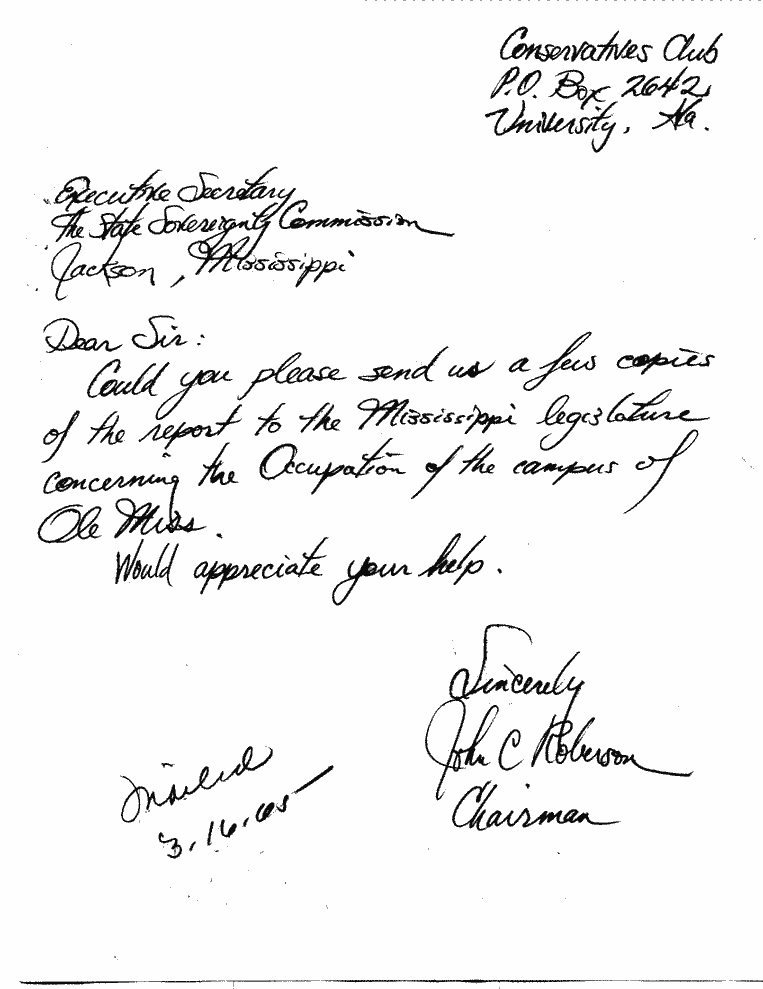 Conservatives Club
P.O. Box 2642
University, Ala.
Executive Secretary
The State Sovereignty Commission
Jackson, Mississippi
Dear Sir:
Could you please send us a few copies
of the report to the Mississippi legislature
concerning the Occupation of the campus of
Ole Miss.
Would appreciate your help.
Sincerely
John C Roberson
Chairman
mailed
3.16.65